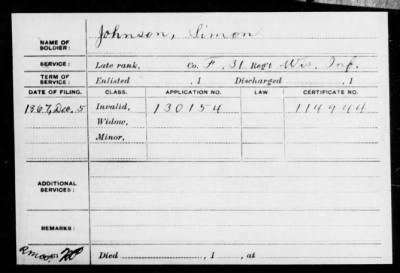 NAME OF SOLDIER: Johnson, Simon
SERVICE: Late rank, Co. F, 31 Reg't Wis. Inf.
TERM OF SERVICE: Enlisted , 1 Discharged , 1
DATE OF FILING. CLASS. APPLICATION NO. LAW. CERTIFICATE NO.
1867, Dec. 5 Invalid, 130154 114944
Widow,
Minor,
ADDITIONAL SERVICES:
REMARKS:
Died , 1 , at